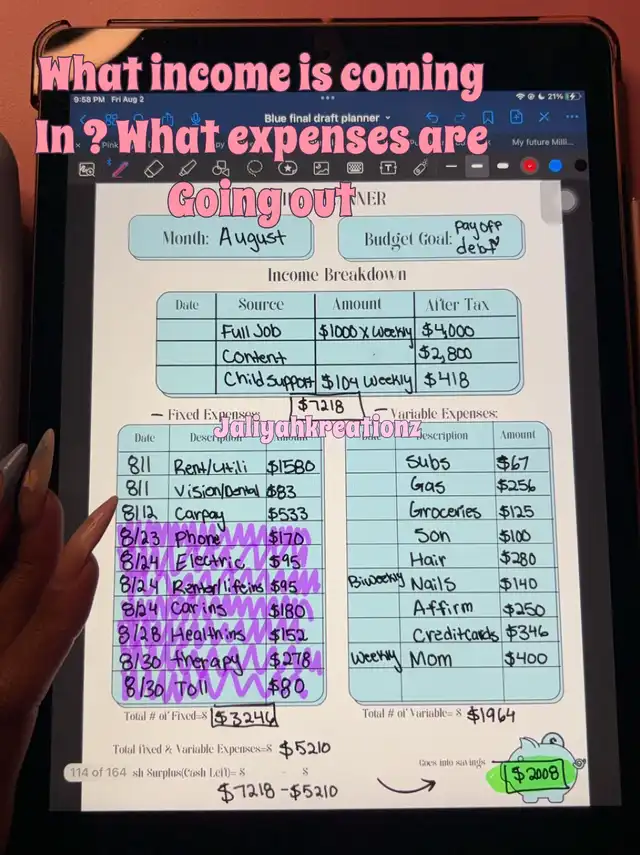 What income is coming
In ? What expenses are
Going out
9:58 PM Fri Aug 2
21%
Blue final draft planner
Pink
My future Milli...
NER
Month: August
Budget Goal: pay off debt
Income Breakdown
Date Source Amount After Tax
Full Job $1000 x weekly $4,000
Content $2,800
Child support $104 weekly $418
$7218
Jaliyahkreationz
Fixed Expenses:
Date Description Amount
8/1 Rent/utili $1580
8/1 Vision/Dental $83
8/12 Carpay $533
8/23 Phone $170
8/24 Electric $95
8/24 Renter/lifeins $95
8/24 Car ins $180
8/28 Health ins $152
8/30 therapy $278
8/30 Toll $80
Total # of Fixed=$ $3246
Variable Expenses:
Date Description Amount
Subs $67
Gas $256
Groceries $125
Son $100
Hair $280
Biweekly Nails $140
Affirm $250
Creditcards $346
Weekly Mom $400
Total # of Variable= $ $1964
Total Fixed & Variable Expenses=$ $5210
114 of 164 sh Surplus(Cash Left)= $ - $
$7218 - $5210
Goes into savings
$2008